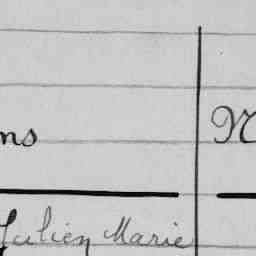 ns N
Julien Marie